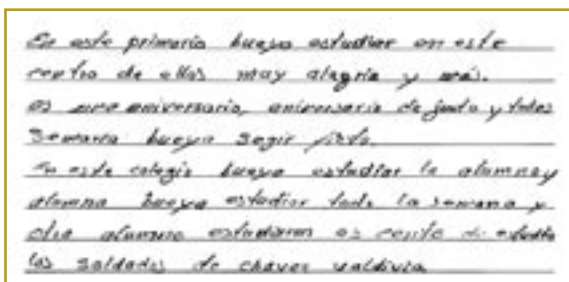 En este primaria bueyo estudiar en este
centro de ellos muy alegria y más.
es une aniversario, aniversario de junto y todos
semana bueyo segir
En este colegio bueyo estudiar la alumno y
alumna bueyo estudiar toda la semana y
alumno estudiaron es de estudio
los soldados de chaves valdivia